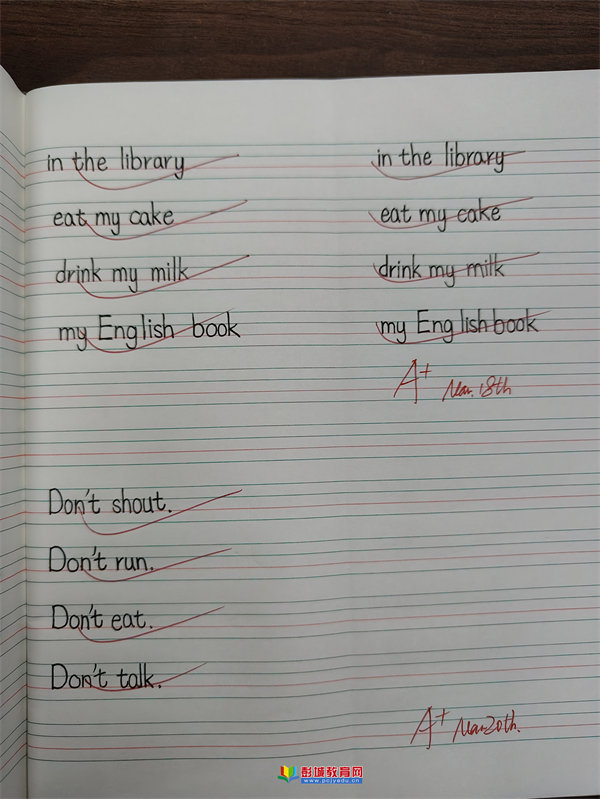 in the library in the library
eat my cake eat my cake
drink my milk drink my milk
my English book my English book
A+ Mar. 18th
Don't shout.
Don't run.
Don't eat.
Don't talk.
A+ Mar 20th.
彭城教育网
www.pcjyedu.cn